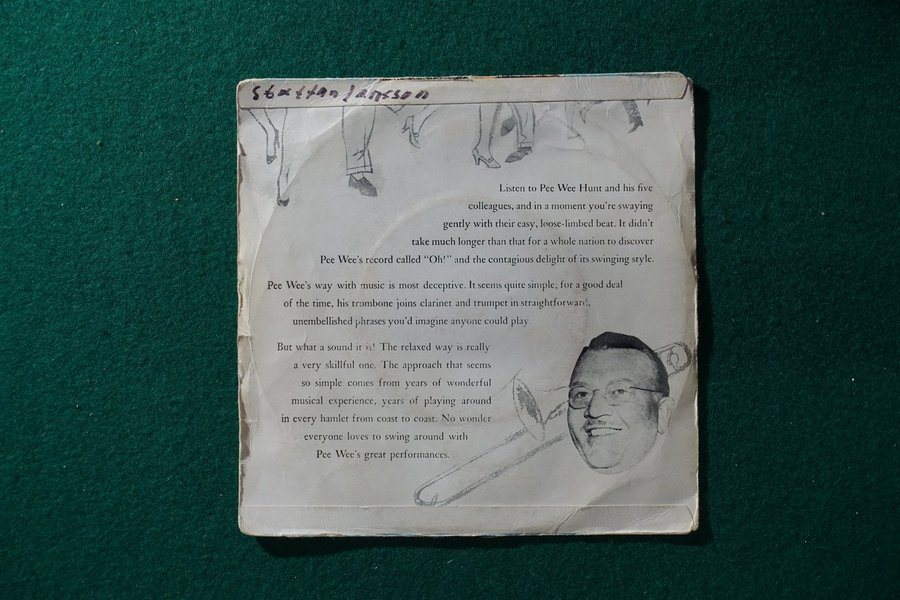 Staffan Jansson
Listen to Pee Wee Hunt and his five
colleagues, and in a moment you're swaying
gently with their easy, loose-limbed beat. It didn't
take much longer than that for a whole nation to discover
Pee Wee's record called "Oh!" and the contagious delight of its swinging style.
Pee Wee's way with music is most deceptive. It seems quite simple; for a good deal
of the time, his trombone joins clarinet and trumpet in straightforward,
unembellished phrases you'd imagine anyone could play.
But what a sound it is! The relaxed way is really
a very skillful one. The approach that seems
so simple comes from years of wonderful
musical experience, years of playing around
in every hamlet from coast to coast. No wonder
everyone loves to swing around with
Pee Wee's great performances.